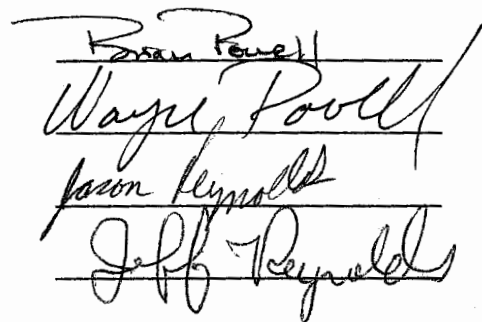 Brian Powell
Wayne Powell
Jason Reynolds
Jeff Reynolds